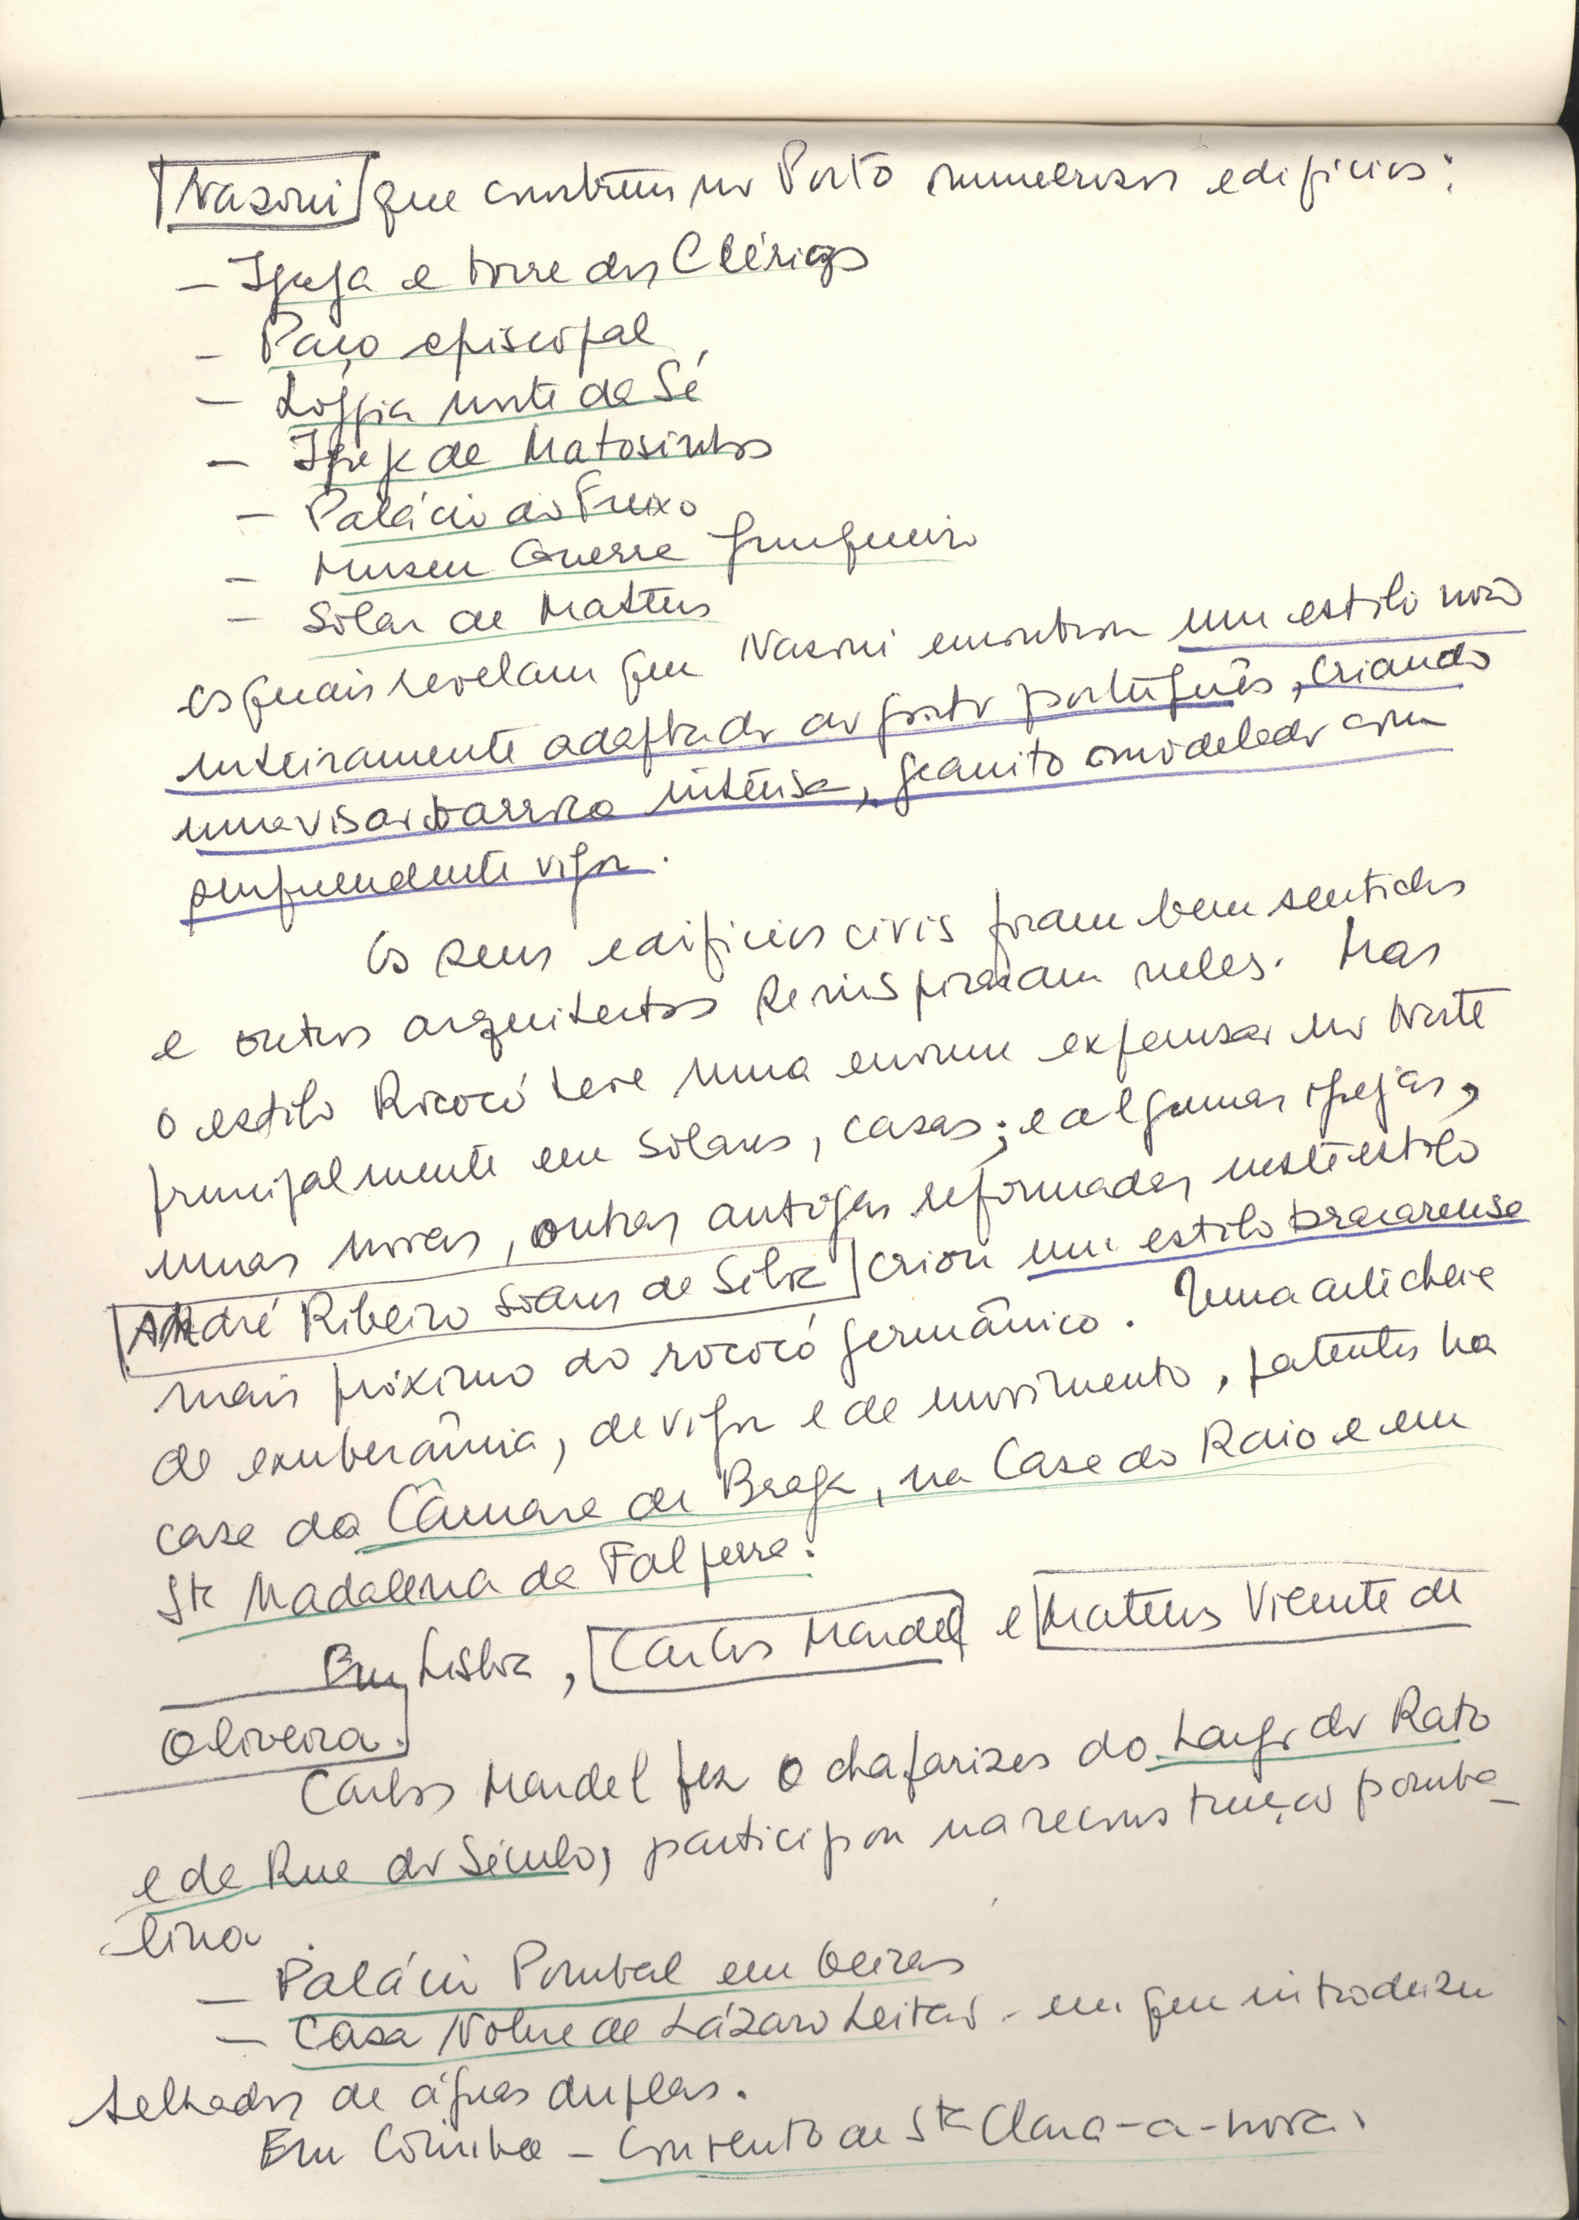 Nasoni que construiu no Porto numerosos edifícios:
– Igreja e torre dos Clérigos
– Paço episcopal
– Lóggia norte da Sé
– Igreja de Matosinhos
– Palácio do Freixo
– Museu Guerra Junqueiro
– Solar de Mateus
os quais revelam que Nasoni encontrou um estilo novo
inteiramente adaptado ao gosto português, criando
uma visão barroca intensa, granito modelado com
surpreendente vigor.
Os seus edifícios civis foram bem sentidos
e outros arquitectos se inspiraram neles. Mas
o estilo Rococó teve uma enorme expansão no Norte
principalmente em solares, casas; e algumas igrejas,
umas novas, outras antigas reformadas neste estilo
André Ribeiro Soares da Silva criou um estilo bracarense
mais próximo do rococó germânico. Numa arte cheia
de exuberância, de vigor e de movimento, patentes na
casa da Câmara de Braga, na Casa do Raio e em
Sta Madalena da Falperra.
Em Lisboa, Carlos Mardel e Mateus Vicente de
Oliveira.
Carlos Mardel fez o chafarizes do Largo do Rato
e da Rua do Século, participou na reconstrução pomba–
lina.
– Palácio Pombal em Oeiras
– Casa Nobre de Lázaro Leitão – em que introduziu
telhados de águas duplas.
Em Coimbra – Convento de Sta Clara-a-nova.